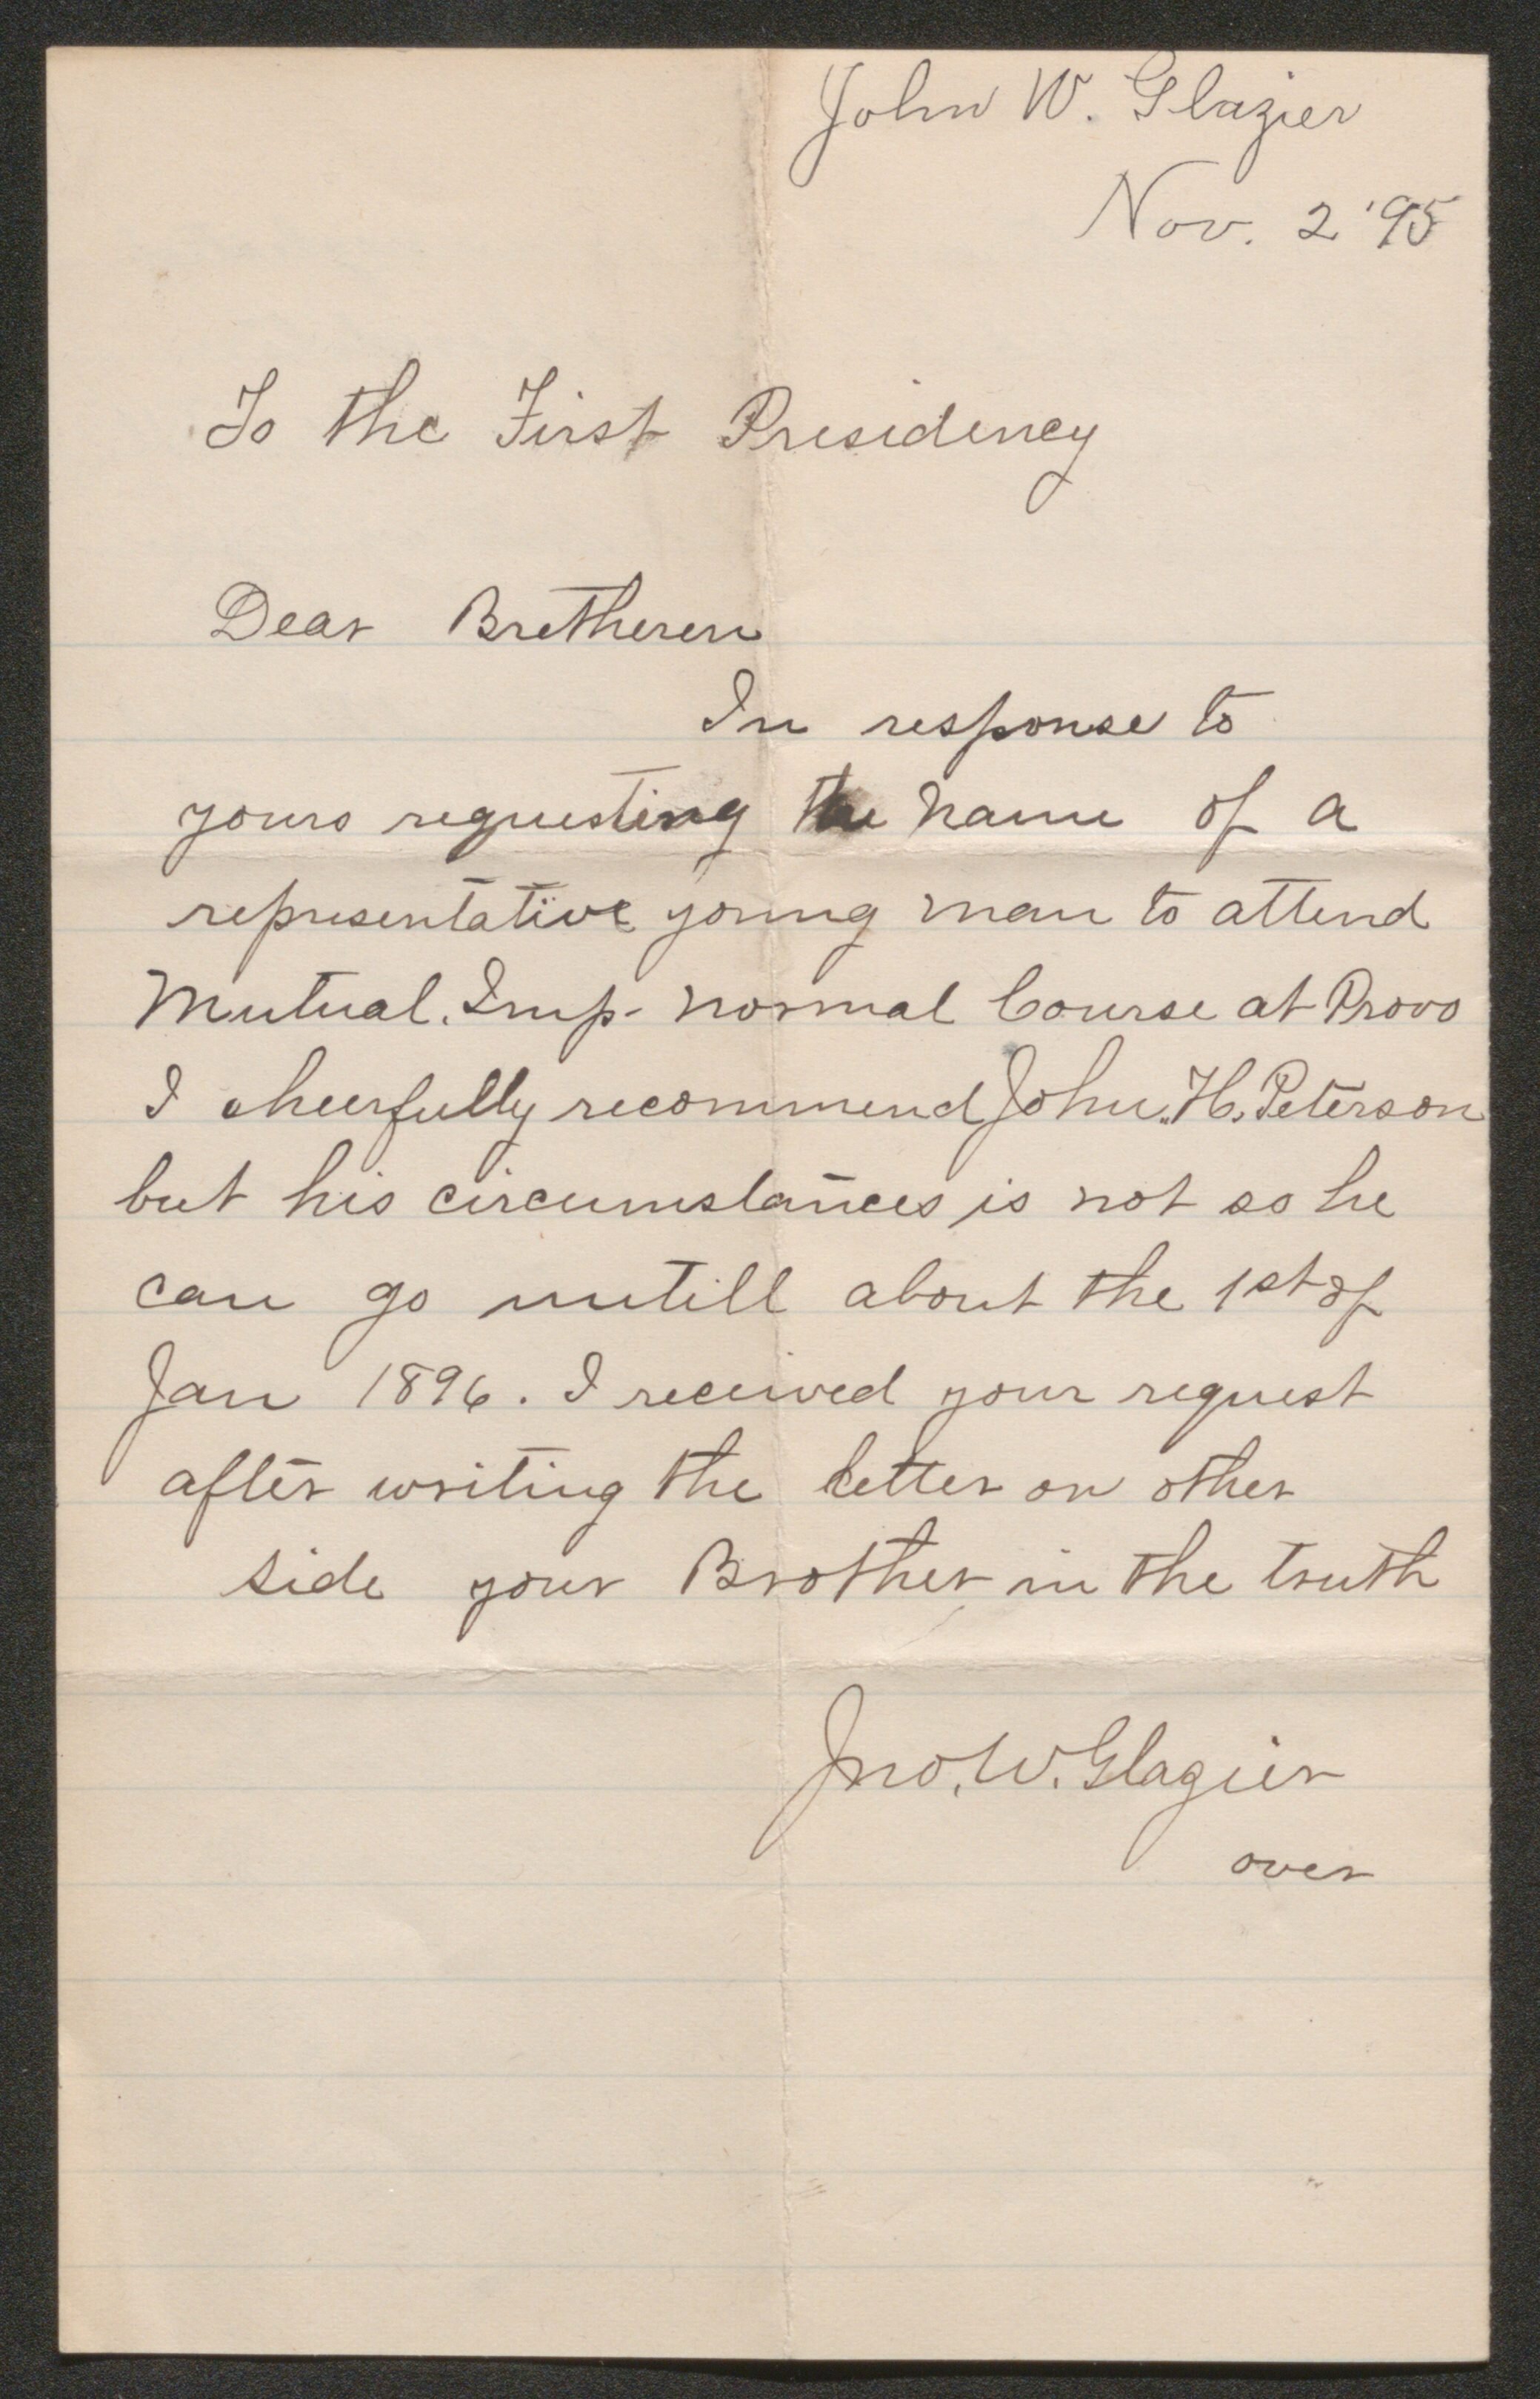 John W. Glazier
Nov. 2 '95
To the First Presidency
Dear Bretheren
In response to
yours requesting the name of a
representative young man to attend
Mutual. Imp. normal Course at Provo
I cheerfully recommend John. H. Peterson
but his circumstances is not so he
can go untill about the 1st of
Jan 1896. I received your request
after writing the letter on other
side your Brother in the truth
Jno. W. Glazier
over